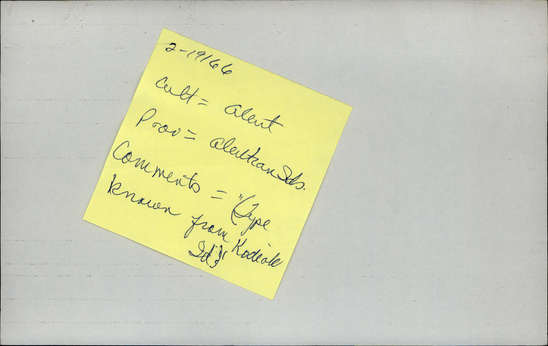 2-19166
Cult = Aleut
Prov = Aleutian Ids.
Comments = "(Type
known from Kodiak
Id)"